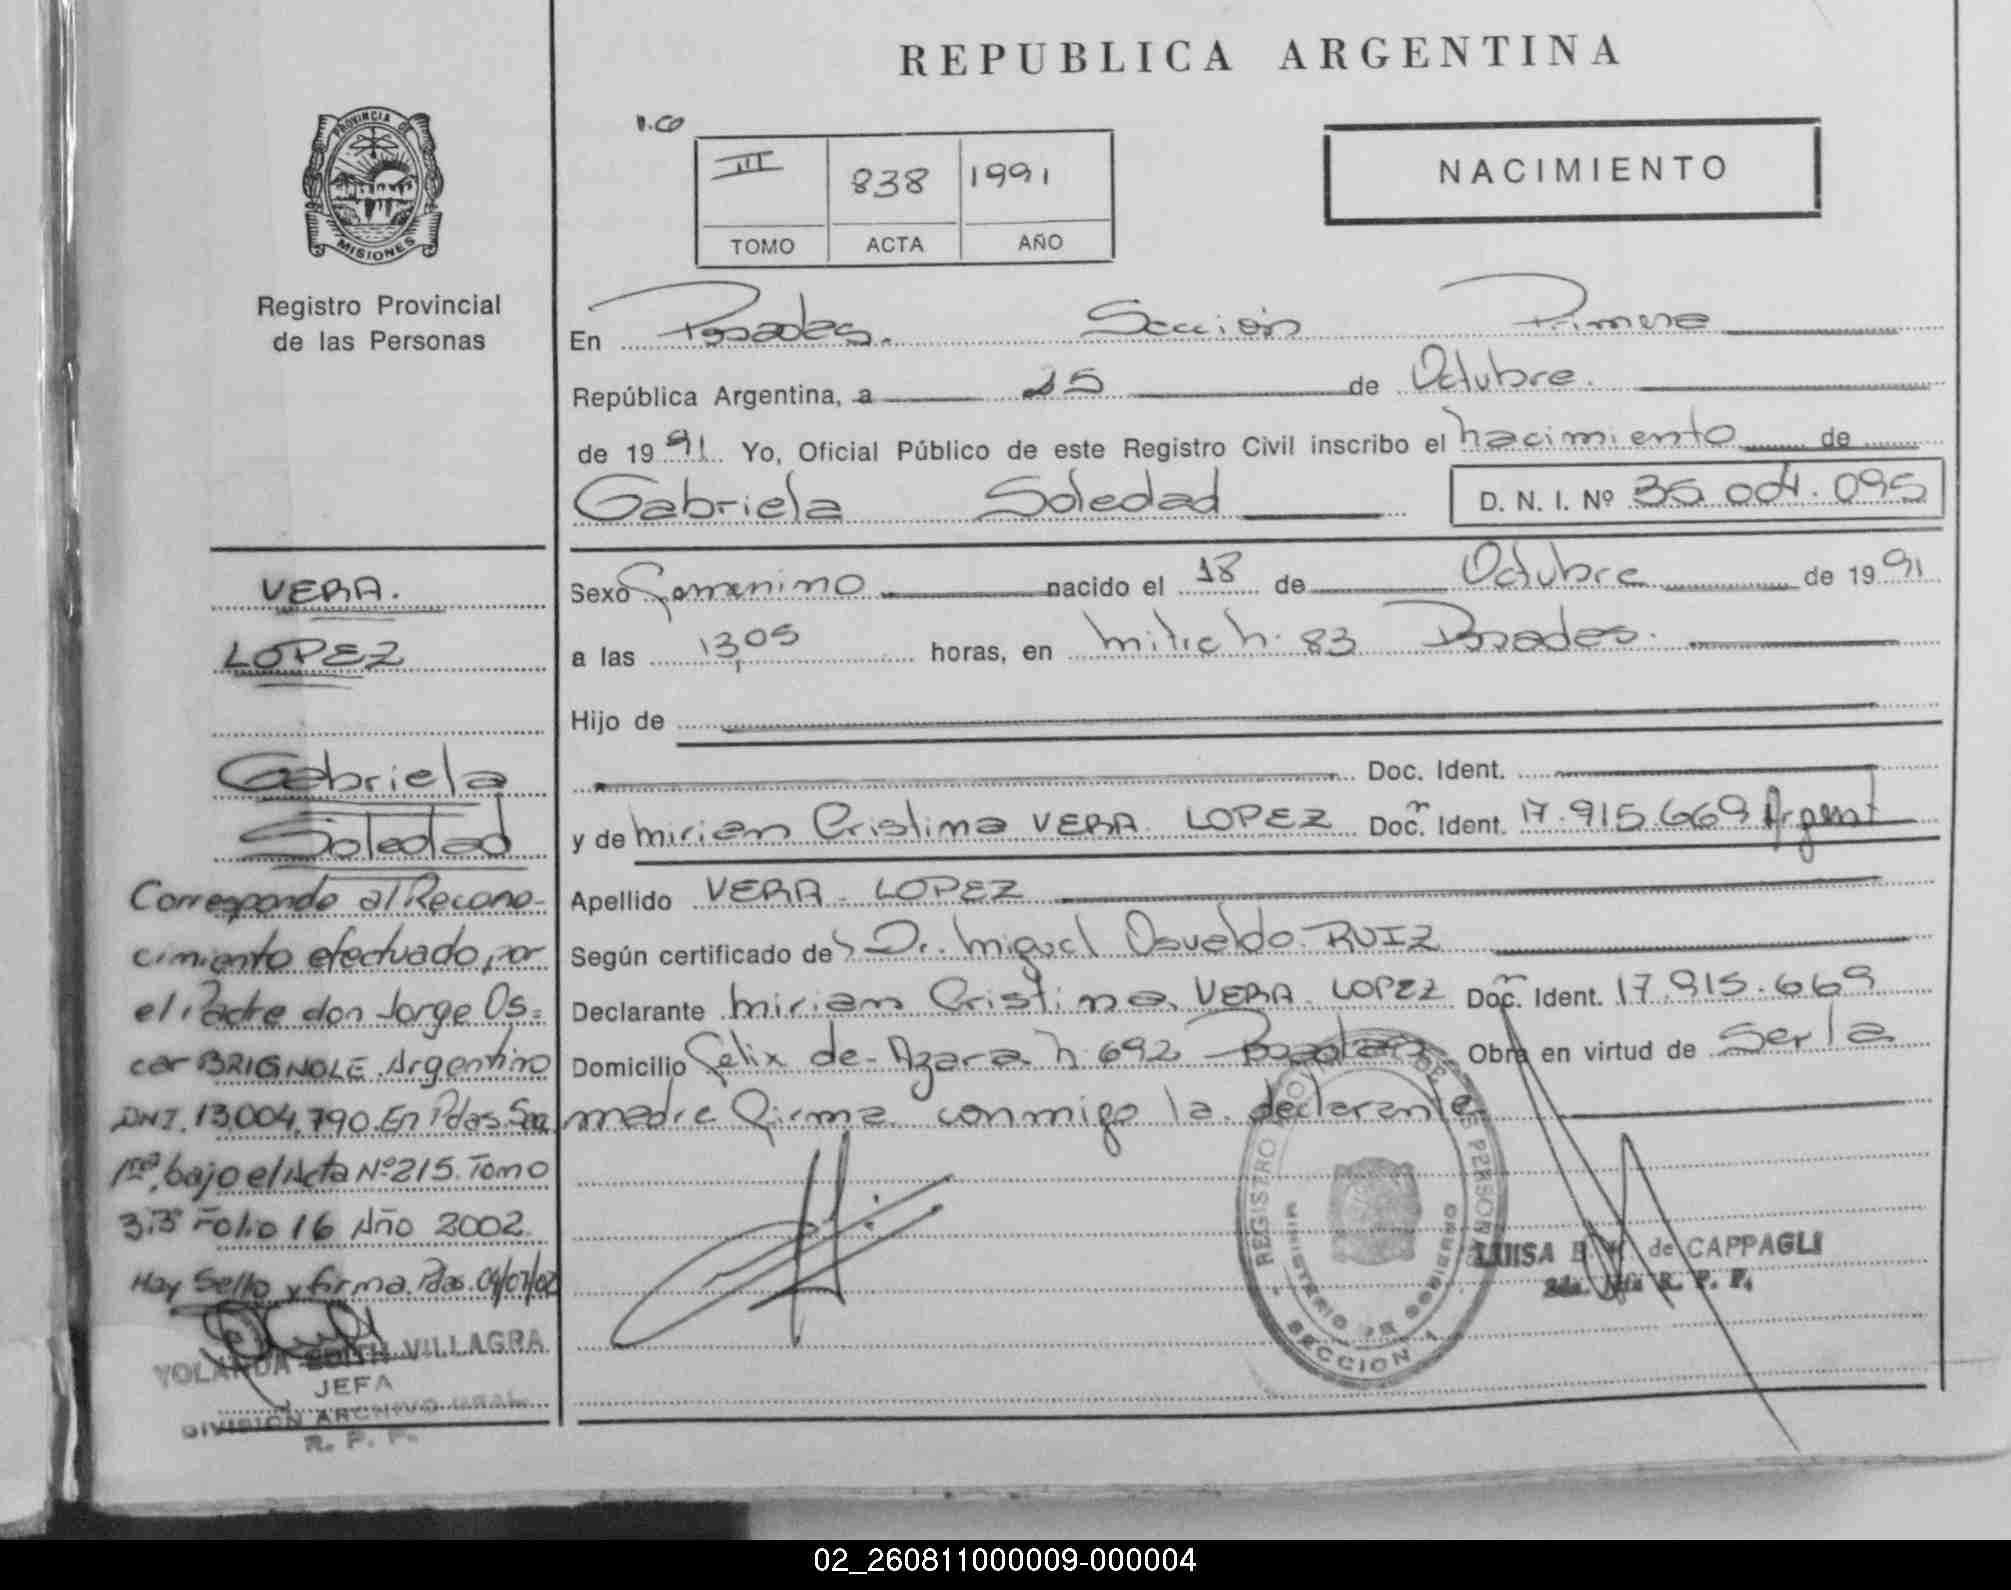 REPUBLICA ARGENTINA
PROVINCIA DE
MISIONES
Registro Provincial
de las Personas
III 838 1991
TOMO ACTA AÑO
NACIMIENTO
En Posadas. Sección Primera
República Argentina, a 25 de Octubre.
de 1991 Yo, Oficial Público de este Registro Civil inscribo el nacimiento de
Gabriela Soledad D. N. I. Nº 35.004.095
Sexo femenino nacido el 18 de Octubre de 1991
a las 13,05 horas, en 83 Posadas.
Hijo de
Doc. Ident.
y de Mirian Cristina VERA LOPEZ Doc. Ident. 17.915.669 Argent
Apellido VERA LOPEZ
Según certificado del Dr. Miguel Osvaldo RUIZ
Declarante Mirian Cristina VERA LOPEZ Doc. Ident. 17.915.669
Domicilio Felix de Azara n 692 Posadas Obra en virtud de Ser la
madre firma conmigo la declarante
VERA.
LOPEZ
Gabriela
Soledad
Corresponde al Recono-
cimiento efectuado por
el Padre don Jorge Os=
car BRIGNOLE Argentino
DNI. 13.004.790. En Pdas. Secc
1ra. bajo el Acta Nº 215. Tomo
3.3º Folio 16 Año 2002.
Hay Sello y firma. Pdas. 04/07/02
YOLANDA EDITH VILLAGRA
JEFA
DIVISION ARCHIVO GRAL.
R. P. P.
REGISTRO PROVINCIAL DE LAS PERSONAS
MINISTERIO DE GOBIERNO
SECCION 1
LUISA de CAPPAGLI
R. P. P.
02_260811000009-000004